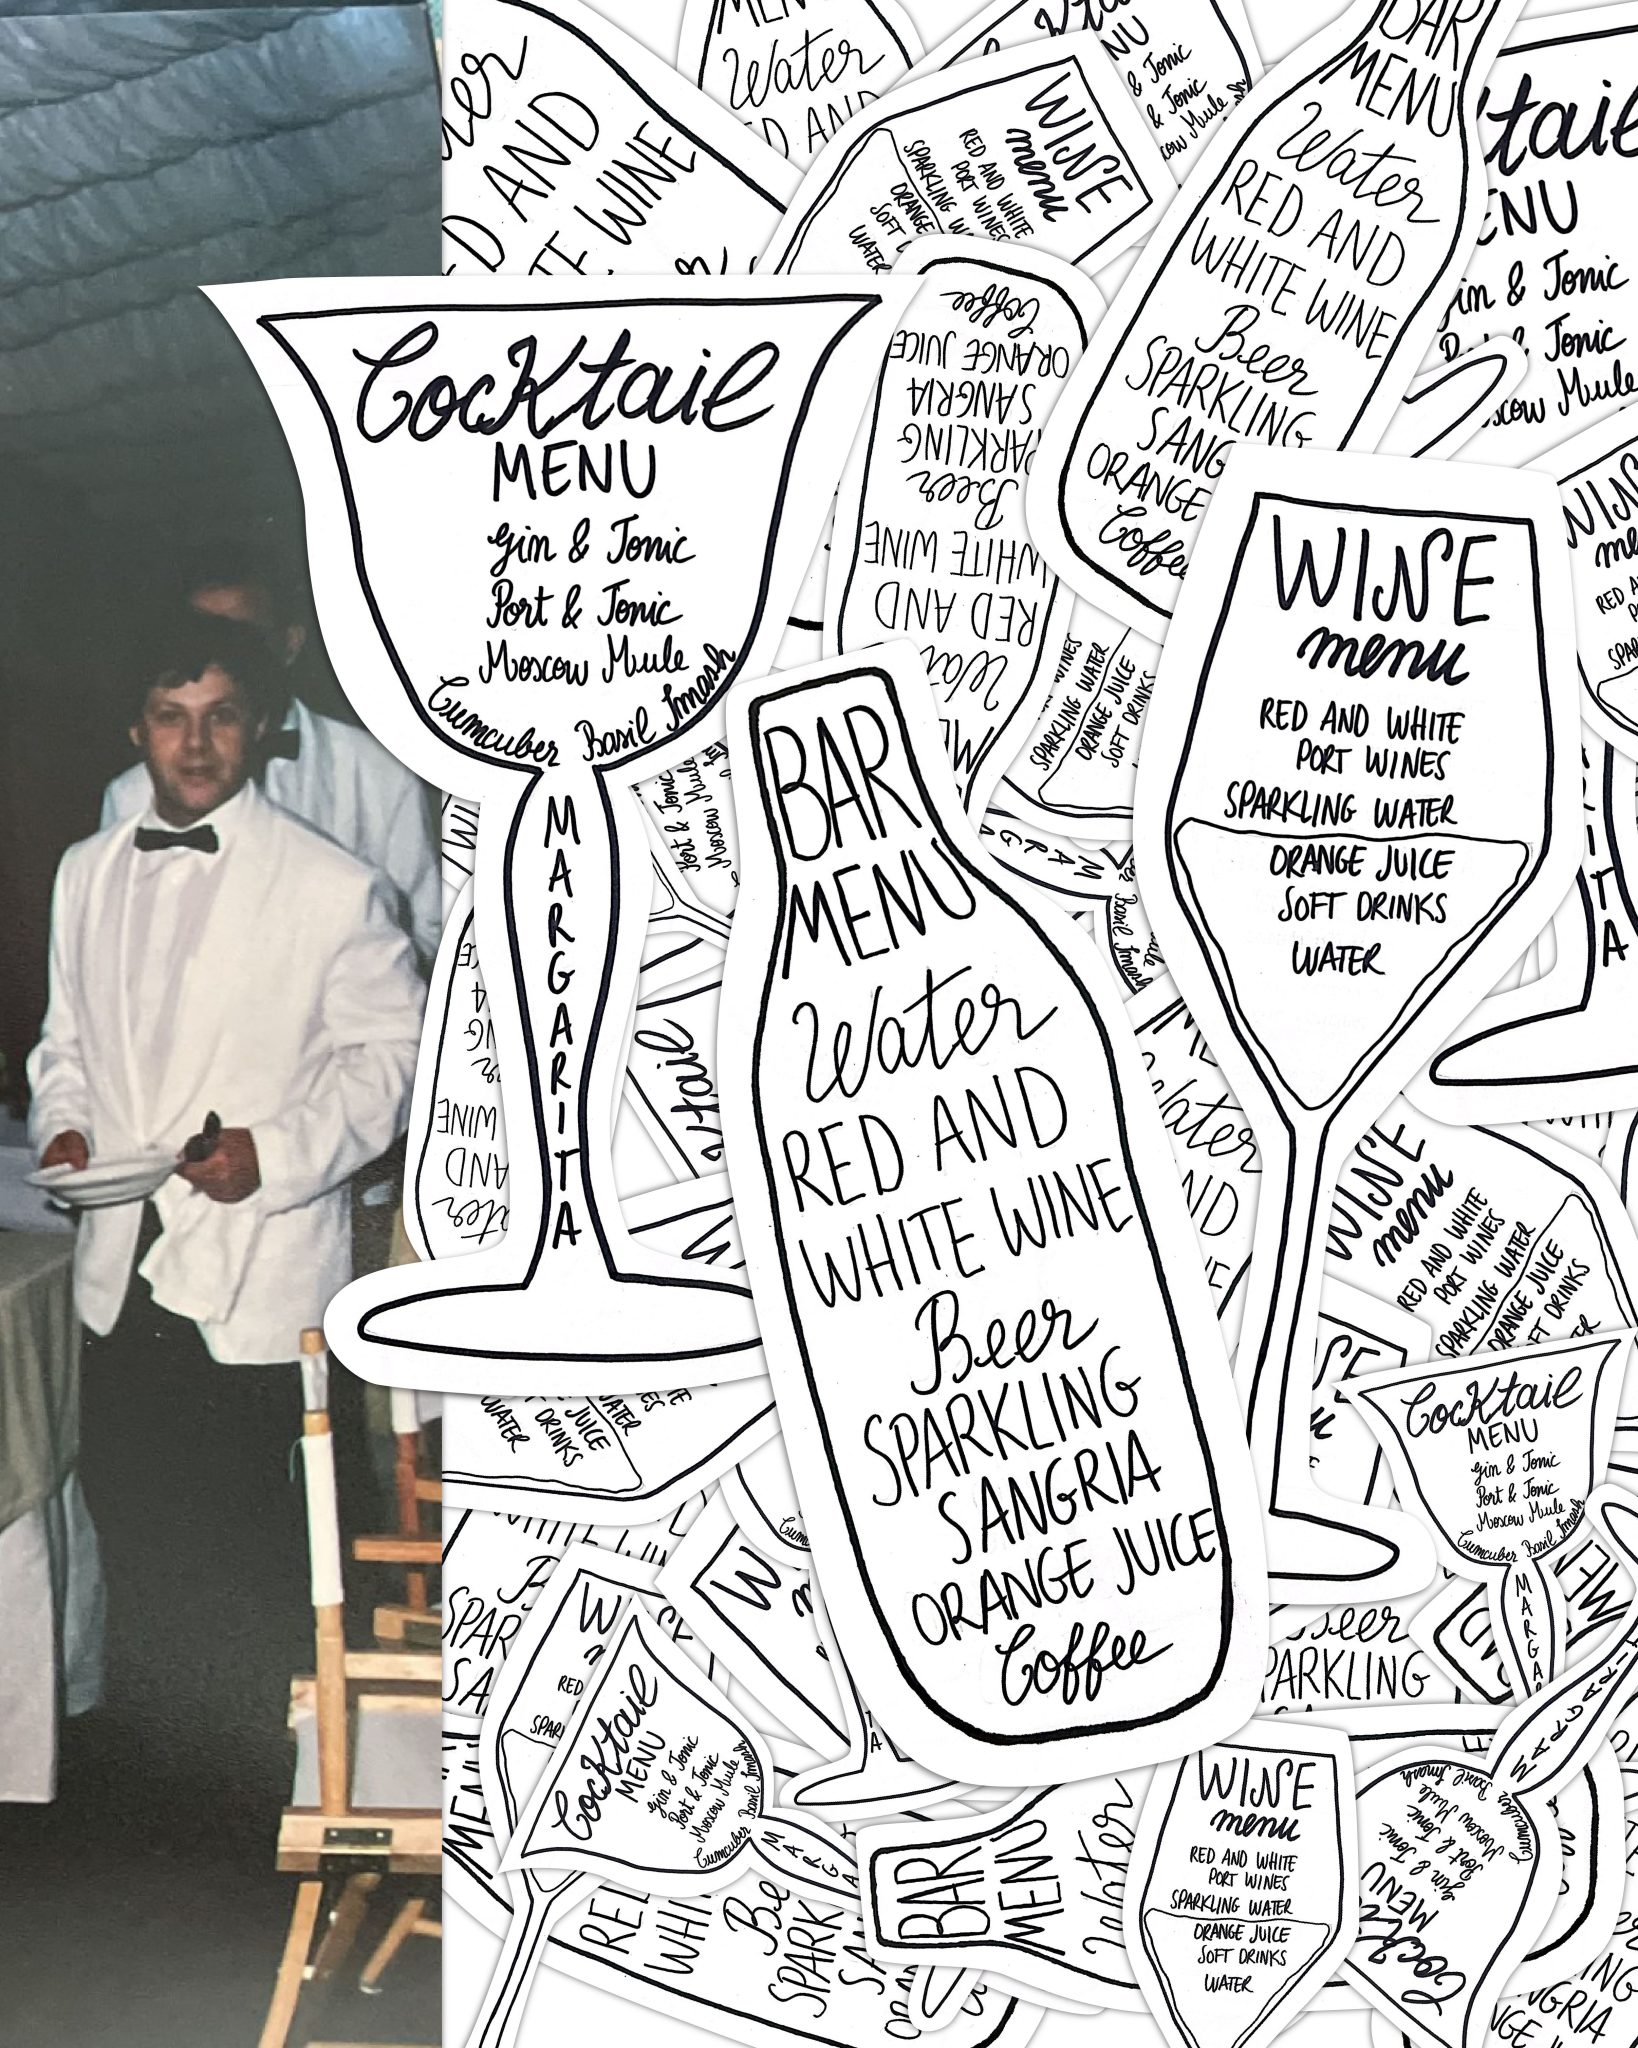 Cocktail
MENU
Gin & Tonic
Port & Tonic
Moscow Mule
Cumcuber Basil Smash
MARGARITA
BAR
MENU
Water
RED AND
WHITE WINE
Beer
SPARKLING
SANGRIA
ORANGE JUICE
Coffee
WINE
menu
RED AND WHITE
PORT WINES
SPARKLING WATER
ORANGE JUICE
SOFT DRINKS
WATER
BAR
MENU
Water
RED AND
WHITE WINE
Beer
SPARKLING
SANG
ORANGE
Coffee
WINE
menu
RED AND WHITE
PORT WINES
SPARKLING W
ORANGE
SOFT
WATER
Coffee
ORANGE JUICE
SANGRIA
ARKLING
Beer
WHITE WINE
RED AND
Wa
ME
ktail
ENU
in & Tonic
& Tonic
oscow Mule
WINE
menu
RED AND WHITE
PORT WINES
SPARKLING WATER
ORANGE JUICE
FT DRINKS
Cocktail
MENU
Gin & Tonic
Port & Tonic
Moscow Mule
Cumcuber Basil Smash
MARGA
Cocktail
MENU
Gin & Tonic
Port & Tonic
Moscow Mule
Cumcuber Basil Smash
MARGA
BAR
MENU
Water
WINE
menu
RED AND WHITE
PORT WINES
SPARKLING WATER
ORANGE JUICE
SOFT DRINKS
WATER
MARGARITA
Cumcuber Basil Smash
Moscow Mule
Port & Tonic
Gin & Tonic
MENU
Cock